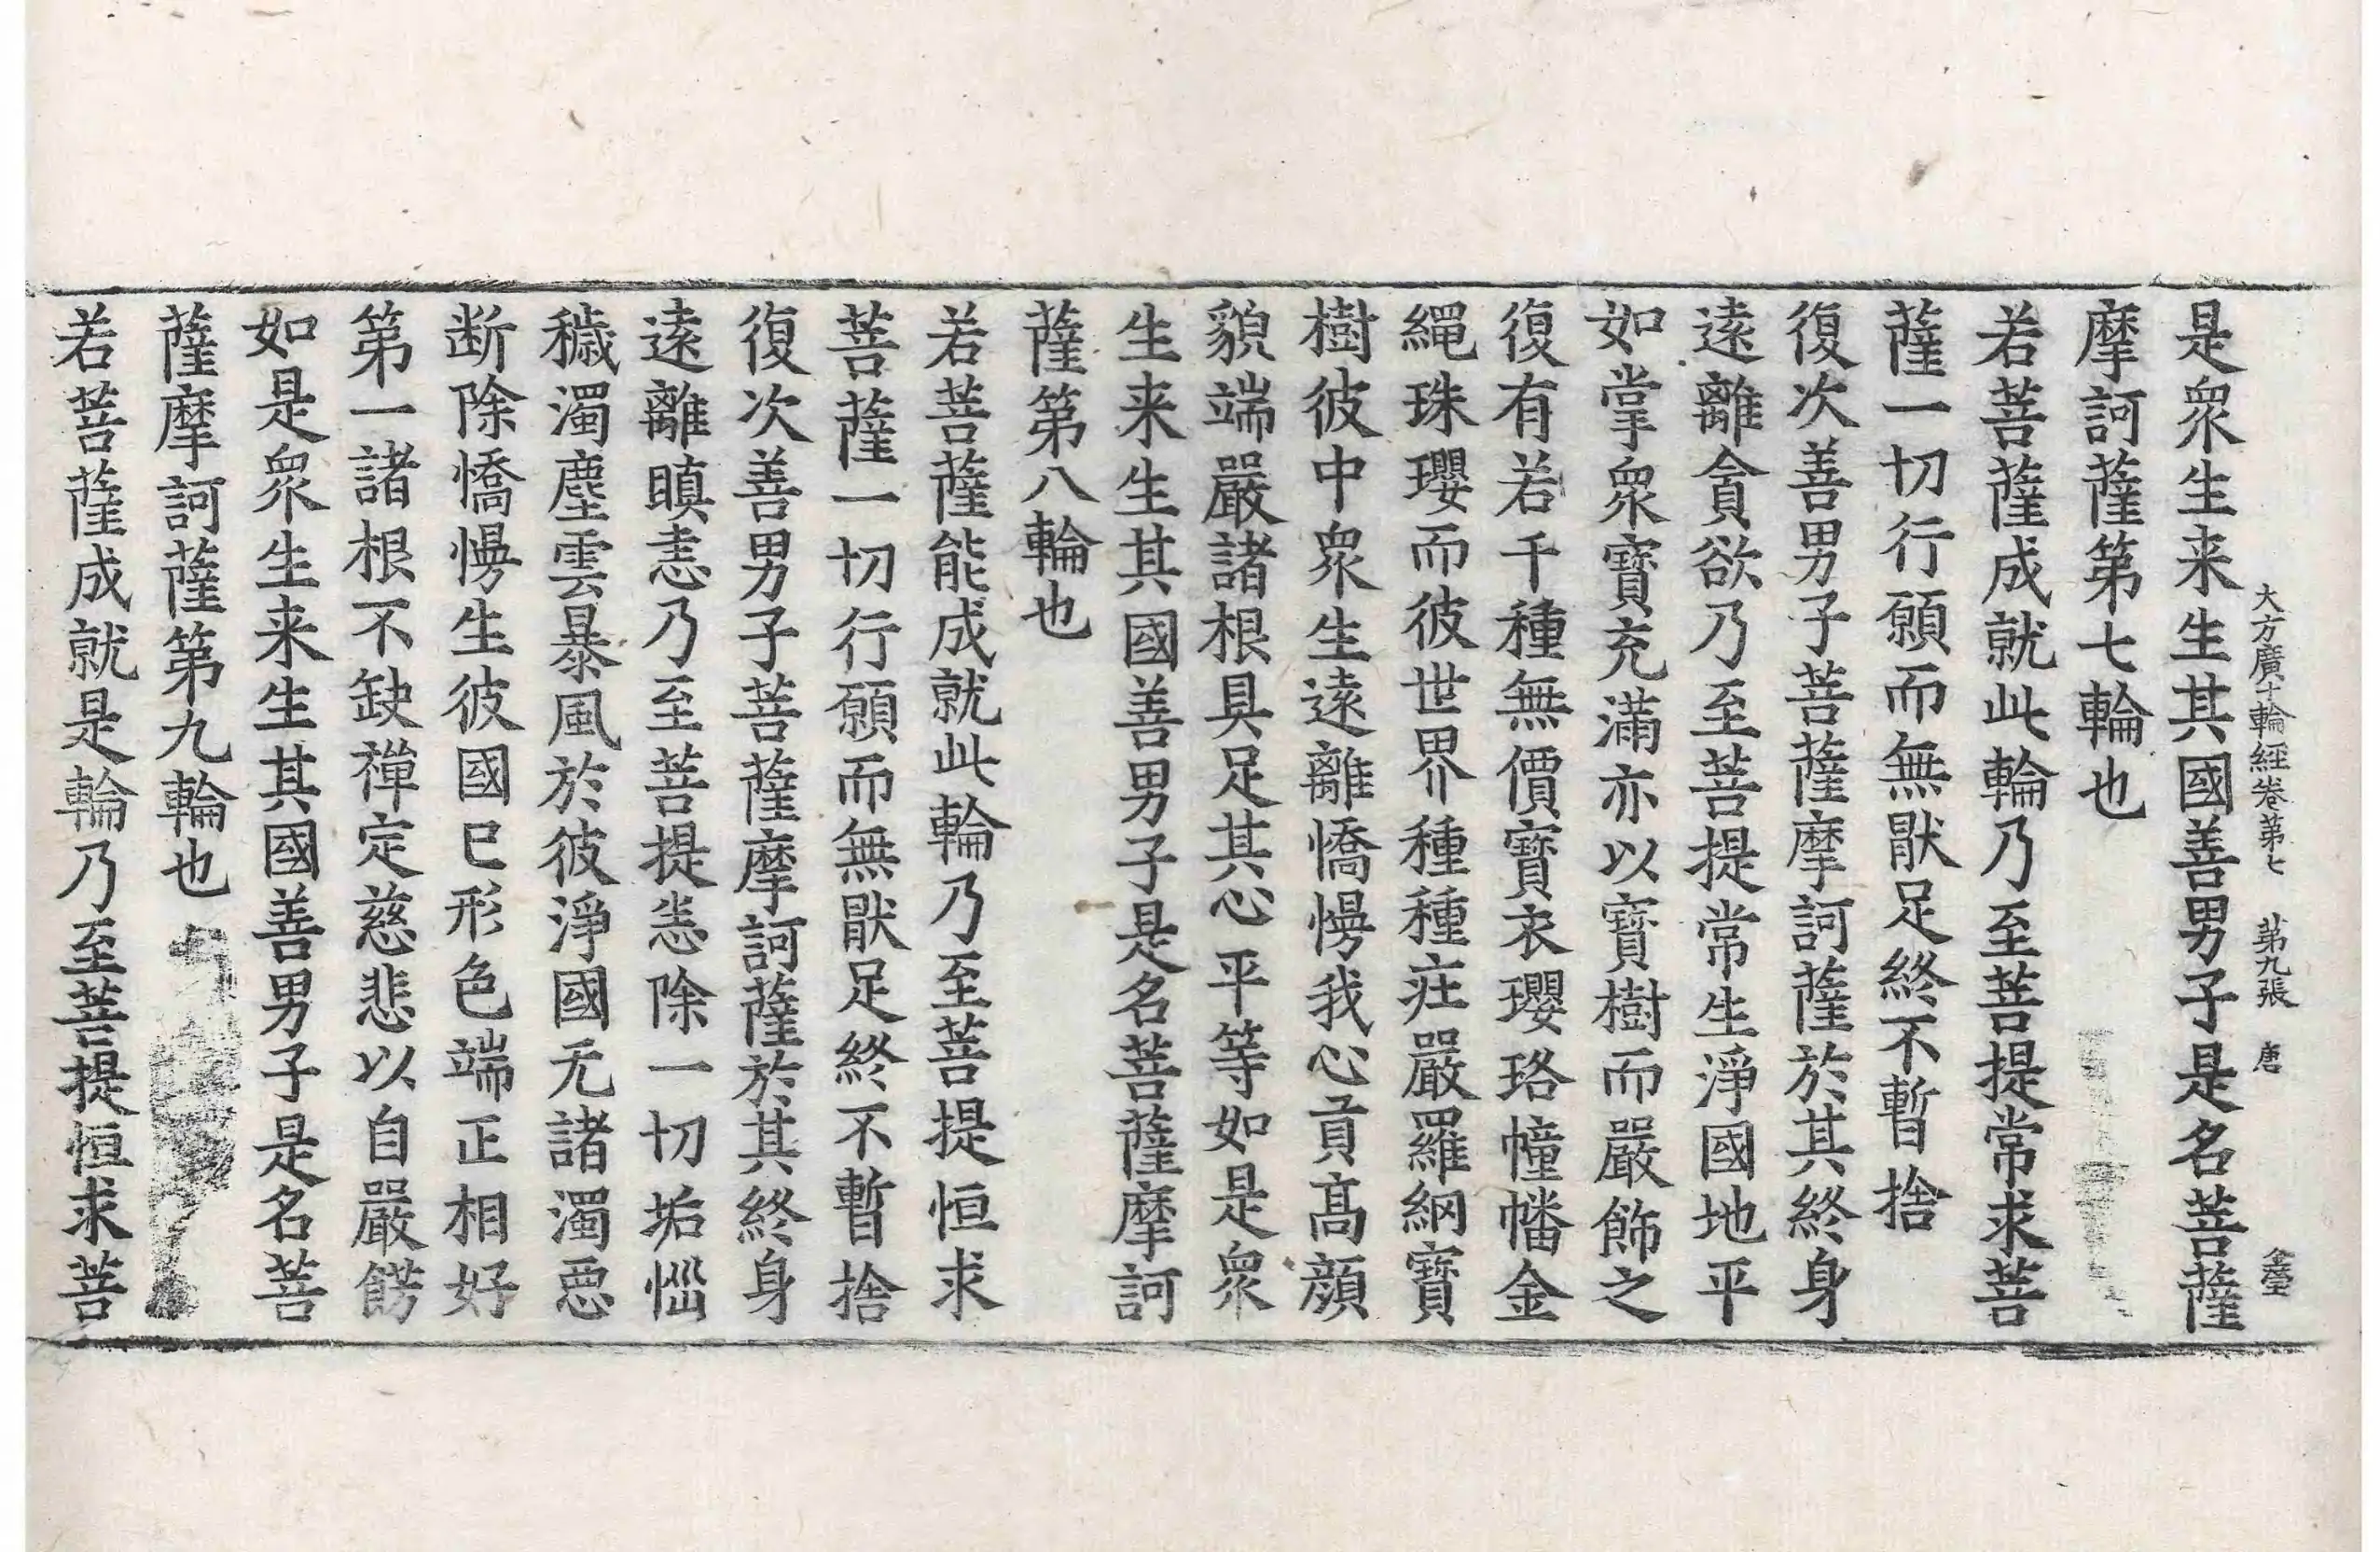 大方廣十輪經卷第七　第九張　唐
是衆生来生其國善男子是名菩薩
摩訶薩第七輪也
若菩薩成就此輪乃至菩提常求菩
薩一切行願而無猒足終不暫捨
復次善男子菩薩摩訶薩於其終身
遠離貪欲乃至菩提常生淨國地平
如掌衆寶充滿亦以寶樹而嚴飾之
復有若干種無價寶衣瓔珞幢幡金
繩珠瓔而彼世界種種莊嚴羅網寶
樹彼中衆生遠離憍慢我心貢高顔
貌端嚴諸根具足其心平等如是衆
生来生其國善男子是名菩薩摩訶
薩第八輪也
若菩薩能成就此輪乃至菩提恒求
菩薩一切行願而無猒足終不暫捨
復次善男子菩薩摩訶薩於其終身
遠離瞋恚乃至菩提恙除一切垢惱
穢濁塵雲暴風於彼淨國无諸濁惡
断除憍慢生彼國巳形色端正相好
第一諸根不缺禪定慈悲以自嚴餝
如是衆生来生其國善男子是名菩
薩摩訶薩第九輪也
若菩薩成就是輪乃至菩提恒求菩